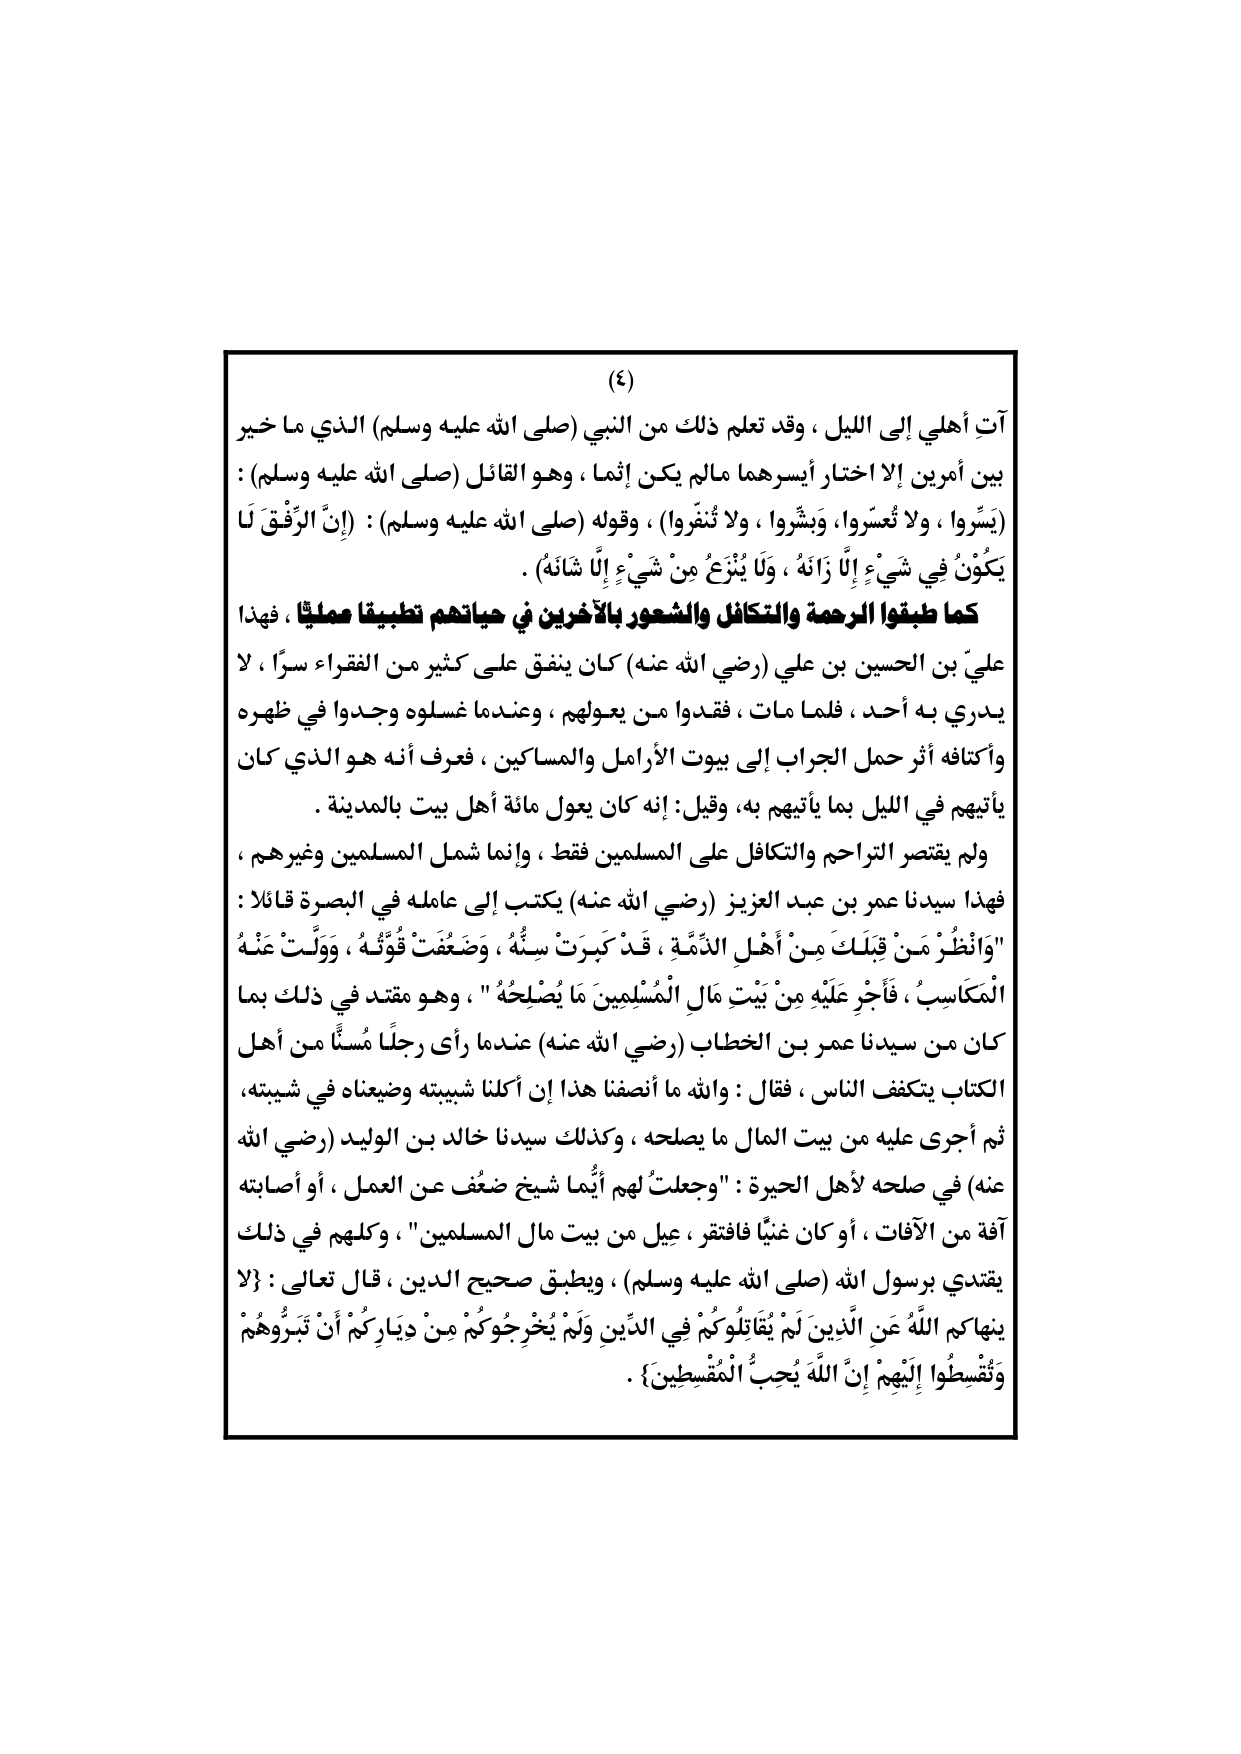 (٤)
آتِ أهلي إلى الليل ، وقد تعلم ذلك من النبي (صلى الله عليه وسلم) الذي ما خير
بين أمرين إلا اختار أيسرهما مالم يكن إثما ، وهو القائل (صلى الله عليه وسلم) :
(يَسِّروا ، ولا تُعسّروا، وَبشِّروا ، ولا تُنفّروا) ، وقوله (صلى الله عليه وسلم) : (إِنَّ الرِّفْقَ لَا
يَكُوْنُ فِي شَيْءٍ إِلَّا زَانَهُ ، وَلَا يُنْزَعُ مِنْ شَيْءٍ إِلَّا شَانَهُ) .
كما طبقوا الرحمة والتكافل والشعور بالآخرين في حياتهم تطبيقا عمليًّا ، فهذا
عليّ بن الحسين بن علي (رضي الله عنه) كان ينفق على كثير من الفقراء سرًا ، لا
يدري به أحد ، فلما مات ، فقدوا من يعولهم ، وعندما غسلوه وجدوا في ظهره
وأكتافه أثر حمل الجراب إلى بيوت الأرامل والمساكين ، فعرف أنه هو الذي كان
يأتيهم في الليل بما يأتيهم به، وقيل: إنه كان يعول مائة أهل بيت بالمدينة .
ولم يقتصر التراحم والتكافل على المسلمين فقط ، وإنما شمل المسلمين وغيرهم ،
فهذا سيدنا عمر بن عبد العزيز (رضي الله عنه) يكتب إلى عامله في البصرة قائلا :
"وَانْظُرْ مَنْ قِبَلَكَ مِنْ أَهْلِ الذِّمَّةِ ، قَدْ كَبِرَتْ سِنُّهُ ، وَضَعُفَتْ قُوَّتُهُ ، وَوَلَّتْ عَنْهُ
الْمَكَاسِبُ ، فَأَجْرِ عَلَيْهِ مِنْ بَيْتِ مَالِ الْمُسْلِمِينَ مَا يُصْلِحُهُ " ، وهو مقتد في ذلك بما
كان من سيدنا عمر بن الخطاب (رضي الله عنه) عندما رأى رجلًا مُسنًّا من أهل
الكتاب يتكفف الناس ، فقال : والله ما أنصفنا هذا إن أكلنا شبيبته وضيعناه في شيبته،
ثم أجرى عليه من بيت المال ما يصلحه ، وكذلك سيدنا خالد بن الوليد (رضي الله
عنه) في صلحه لأهل الحيرة : "وجعلتُ لهم أيُّما شيخ ضعُف عن العمل ، أو أصابته
آفة من الآفات ، أو كان غنيًّا فافتقر ، عِيل من بيت مال المسلمين" ، وكلهم في ذلك
يقتدي برسول الله (صلى الله عليه وسلم) ، ويطبق صحيح الدين ، قال تعالى : {لا
ينهاكم اللَّهُ عَنِ الَّذِينَ لَمْ يُقَاتِلُوكُمْ فِي الدِّينِ وَلَمْ يُخْرِجُوكُمْ مِنْ دِيَارِكُمْ أَنْ تَبَرُّوهُمْ
وَتُقْسِطُوا إِلَيْهِمْ إِنَّ اللَّهَ يُحِبُّ الْمُقْسِطِينَ} .